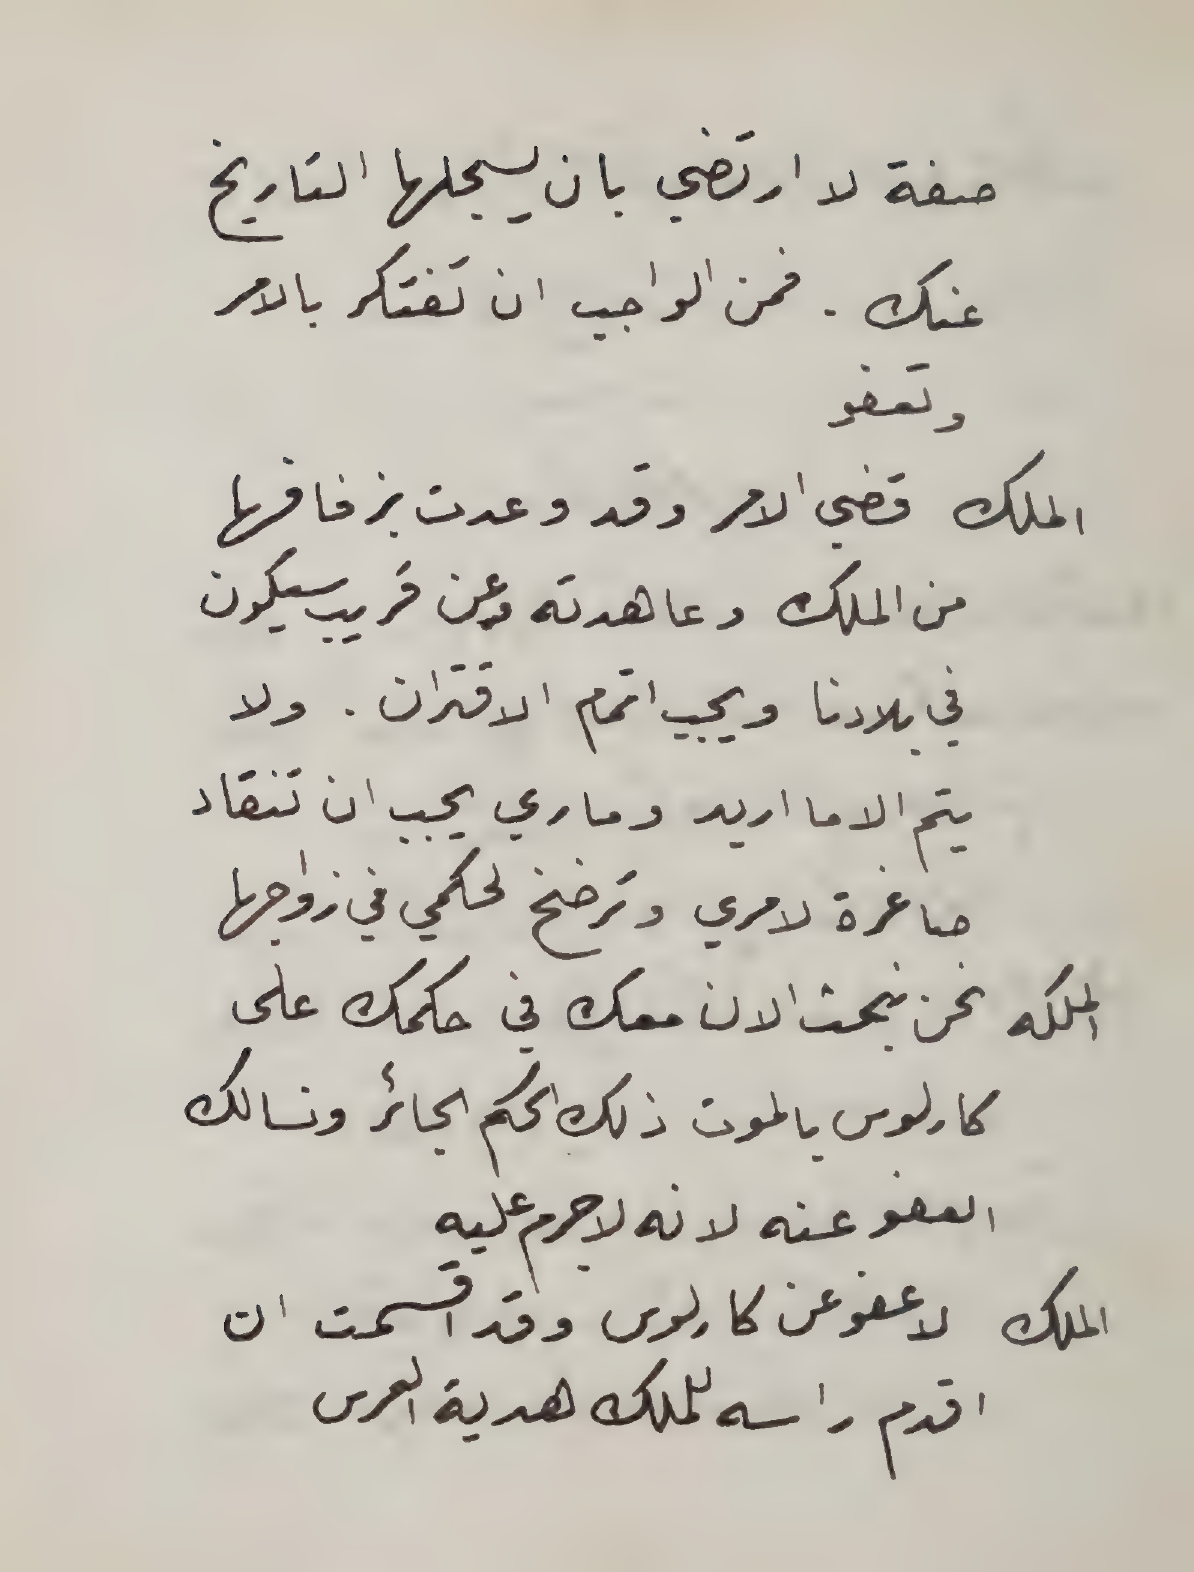 صفة لا ارتضي بان يسجلها التاريخ
عنك . فمن الواجب ان تفتكر بالامر
وتعفو
الملك قضي الامر وقد وعدت بزفافها
من الملك وعاهدته وعن قريب سيكون
في بلادنا ويجب اتمام الاقتران . ولا
يتم الا ما اريد وماري يجب ان تنقاد
صاغرة لامري وترضخ لحكمي في زواجها
الملكه نحن نبحث الان معك في حكمك على
كارلوس بالموت ذلك الحكم الجائر ونسالك
العفو عنه لانه لا جرم عليه
الملك لا عفو عن كارلوس وقد اقسمت ان
اقدم راسه للملك هدية العرس